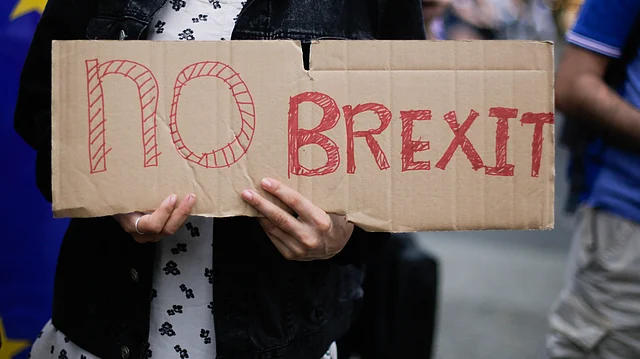 no BREXIT